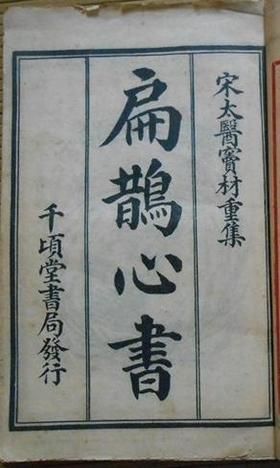 宋太醫竇材重集
扁鵲心書
千頃堂書局發行